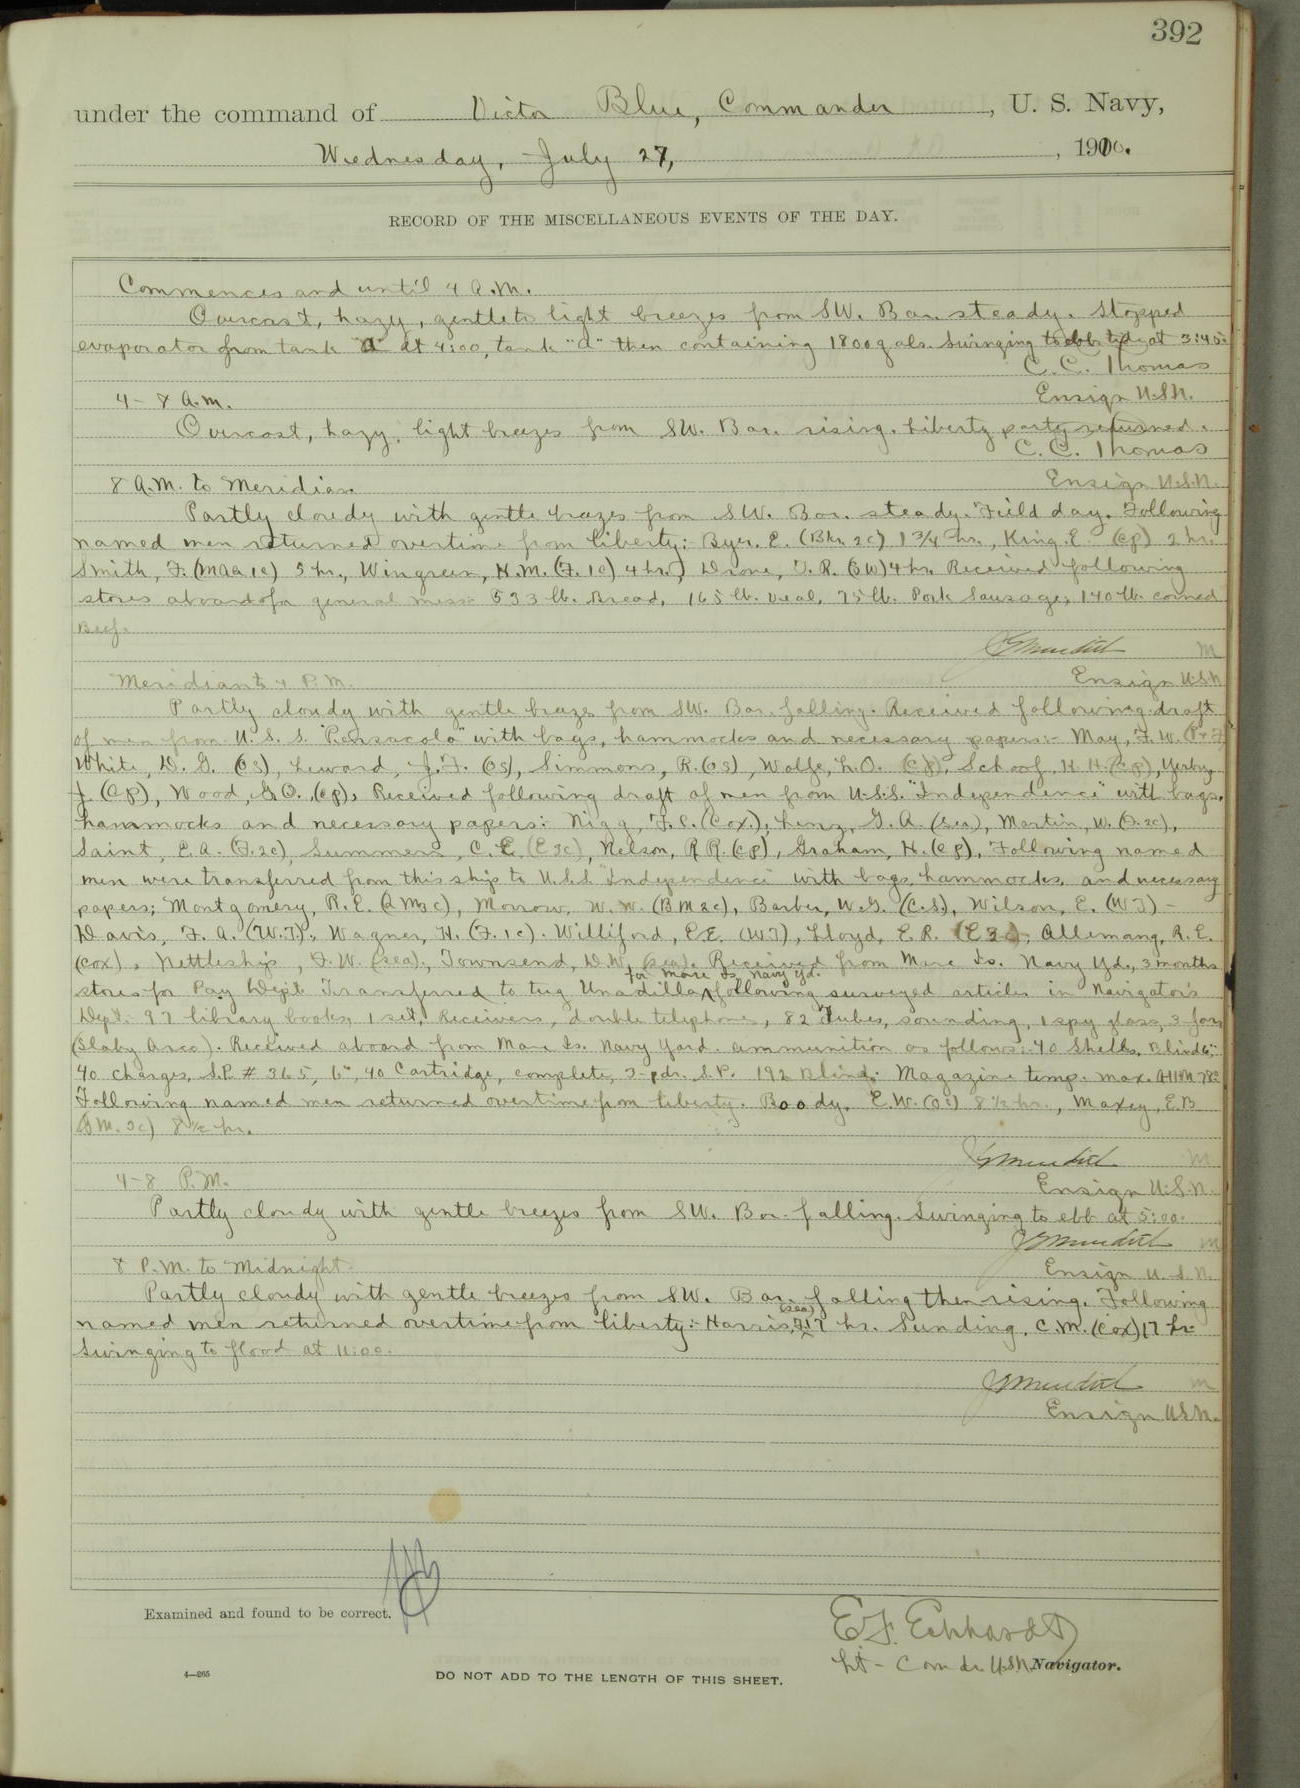 392
under the command of Victor Blue, Commander, U. S. Navy,
Wednesday, July 27, 1910.
RECORD OF THE MISCELLANEOUS EVENTS OF THE DAY.
Commences and until 4 A.M.
Overcast, hazy, gentle to light breezes from SW. Bar. steady. Stopped
evaporator from tank "a" at 4:00, tank "a" then containing 1800 gals. Swinging to ebb tide at 3:45.
C. C. Thomas
4 - 8 A.M.
Ensign U.S.N.
Overcast, hazy, light breezes from SW. Bar. rising. Liberty party returned.
C. C. Thomas
8 A.M. to Meridian
Ensign U.S.N.
Partly cloudy with gentle breezes from SW. Bar. steady. Field day. Following
named men returned overtime from liberty:- Byer. E. (Bkr. 2c) 1 3/4 hr., King. E (cp) 2 hr.
Smith, F. (MAA 1c) 5 hr., Wingreen, H.M. (F. 1c) 4 hr., Drone, T. R. (SW) 4 hr. Received following
stores aboard for general mess:- 533 lb. Bread, 165 lb. Veal, 75 lb. Pork Sausage, 140 lb. corned
Beef.
JG Meredith
Meridian to 4 P.M.
Ensign U.S.N
Partly cloudy with gentle breezes from SW. Bar. falling. Received following draft
of men from U.S.S. "Pensacola" with bags, hammocks and necessary papers:- May, F. W. (P+F)
White, D. G. (OS), Leward, J. F. (OS), Simmons, R. (OS), Wolfe, L.O. (cp), Schoof, H. H. (cp), Yerby,
J. (cp), Wood, G.O. (cp), Received following draft of men from U.S.S. "Independence" with bags,
hammocks and necessary papers: Nigg, F. C. (Cox.), Lenz, G. A. (Sea), Martin, W. (F. 2c),
Saint, E. A. (F. 2c), Summers, C. E. (E 2c), Nelson, R R. (cp), Graham, H. (cp), Following named
men were transferred from this ship to U.S.S. Independence with bags, hammocks, and necessary
papers; Montgomery, R. E. (GM 3c), Morrow, W. W. (BM 2c), Barber, W.G. (C.S.), Wilson, E. (WT) -
Davis, F. A. (W.T), Wagner, H. (F. 1c). Williford, E E. (WT), Lloyd, E. R. (E 2c), Allemang, R. E.
(cox), Nettleship, F. W. (sea), Townsend, D.W. (sea). Received from Mare Is. Navy Yd., 3 months
for Mare Is. Navy Yd.
stores for Pay Dept. Transferred to tug Unadilla following surveyed articles in Navigator's
Dept:- 97 library books, 1 set, Receivers, double telephone, 82 Tubes, sounding, 1 spy glass, 3 jars
(Slaby Arco). Received aboard from Mare Is. Navy Yard. ammunition as follows:- 40 Shells, Blind 6",
40 charges, S.P. # 365, 6", 40 Cartridge, complete, 3-pdr. S.P. 192 Blind. Magazine temp. max.
Following named men returned overtime from liberty. Boody, E.W. (O.S) 8 1/2 hr., Maxey, E.B
(GM. 3c) 8 1/2 hr.
JG Meredith
4 - 8 P.M.
Ensign U.S.N.
Partly cloudy with gentle breezes from SW. Bar. falling. Swinging to ebb at 5:00.
JG Meredith
8 P.M. to Midnight.
Ensign U.S.N.
Partly cloudy with gentle breezes from SW. Bar. falling then rising. Following
(sea)
named men returned overtime from liberty:- Harris, F. 17 hr. Sunding, C. M. (Cox) 17 hr
Swinging to flood at 11:00.
JG Meredith
Ensign U.S.N.
Examined and found to be correct.
E. F. Eckhardt
Lt - Comdr U.S.N. Navigator.
4—265
DO NOT ADD TO THE LENGTH OF THIS SHEET.